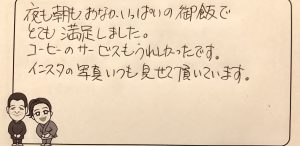 夜も朝もおなかいっぱいの御飯で
とても満足しました。
コーヒーのサービスもうれしかったです。
インスタの写真いつも見せて頂いています。